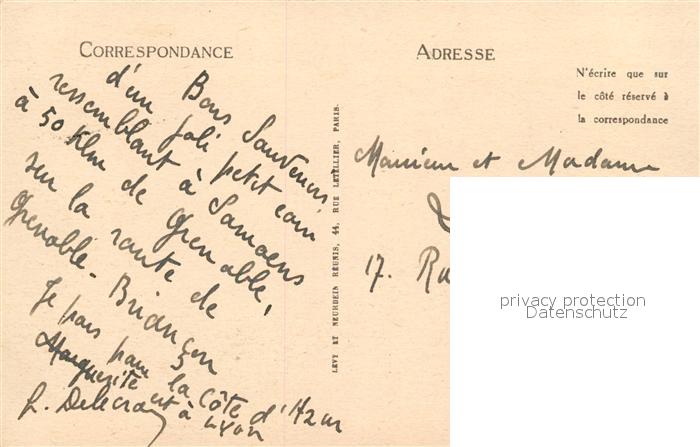 CORRESPONDANCE
Bons Souvenirs
d'un joli petit coin
ressemblant à Samoens
à 50 Klm de Grenoble,
sur la route de
Grenoble - Briançon
Je pars pour la Côte d'Azur
Marguerite est à Lyon
LEVY ET NEURDEIN RÉUNIS, 44, RUE LETELLIER, PARIS.
ADRESSE
N'écrire que sur
le côté réservé à
la correspondance
Monsieur et Madame
17. Ru
privacy protection
Datenschutz